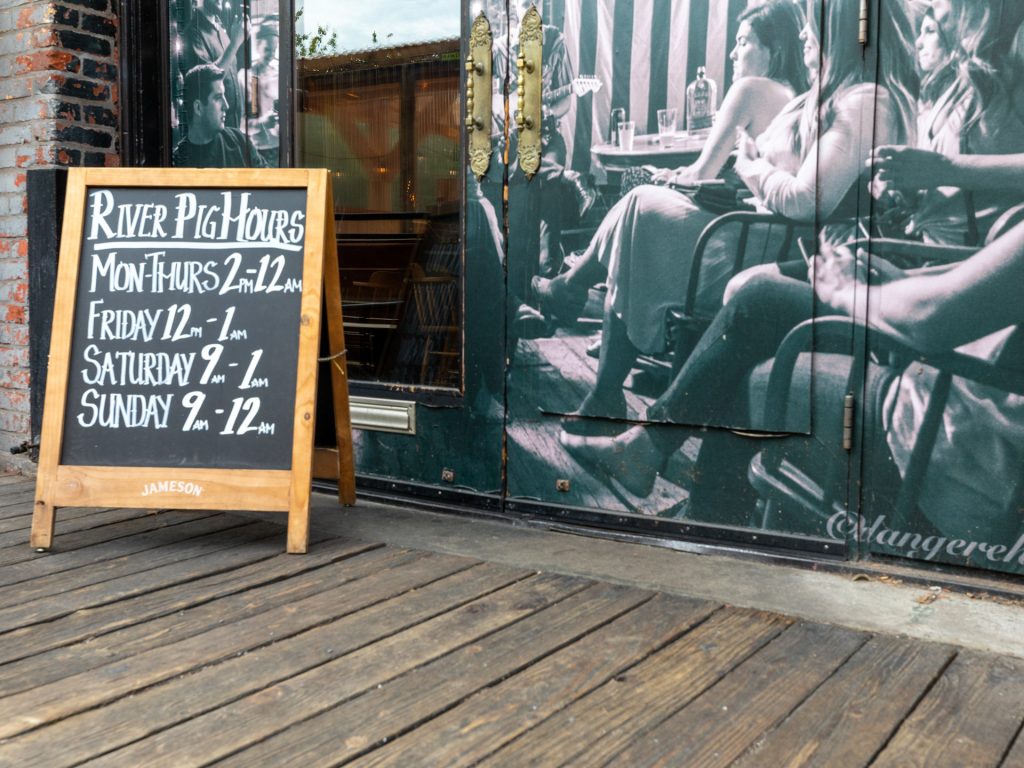 RIVER PIG HOURS
MON-THURS 2PM-12AM
FRIDAY 12PM-1AM
SATURDAY 9AM-1AM
SUNDAY 9AM-12AM
JAMESON